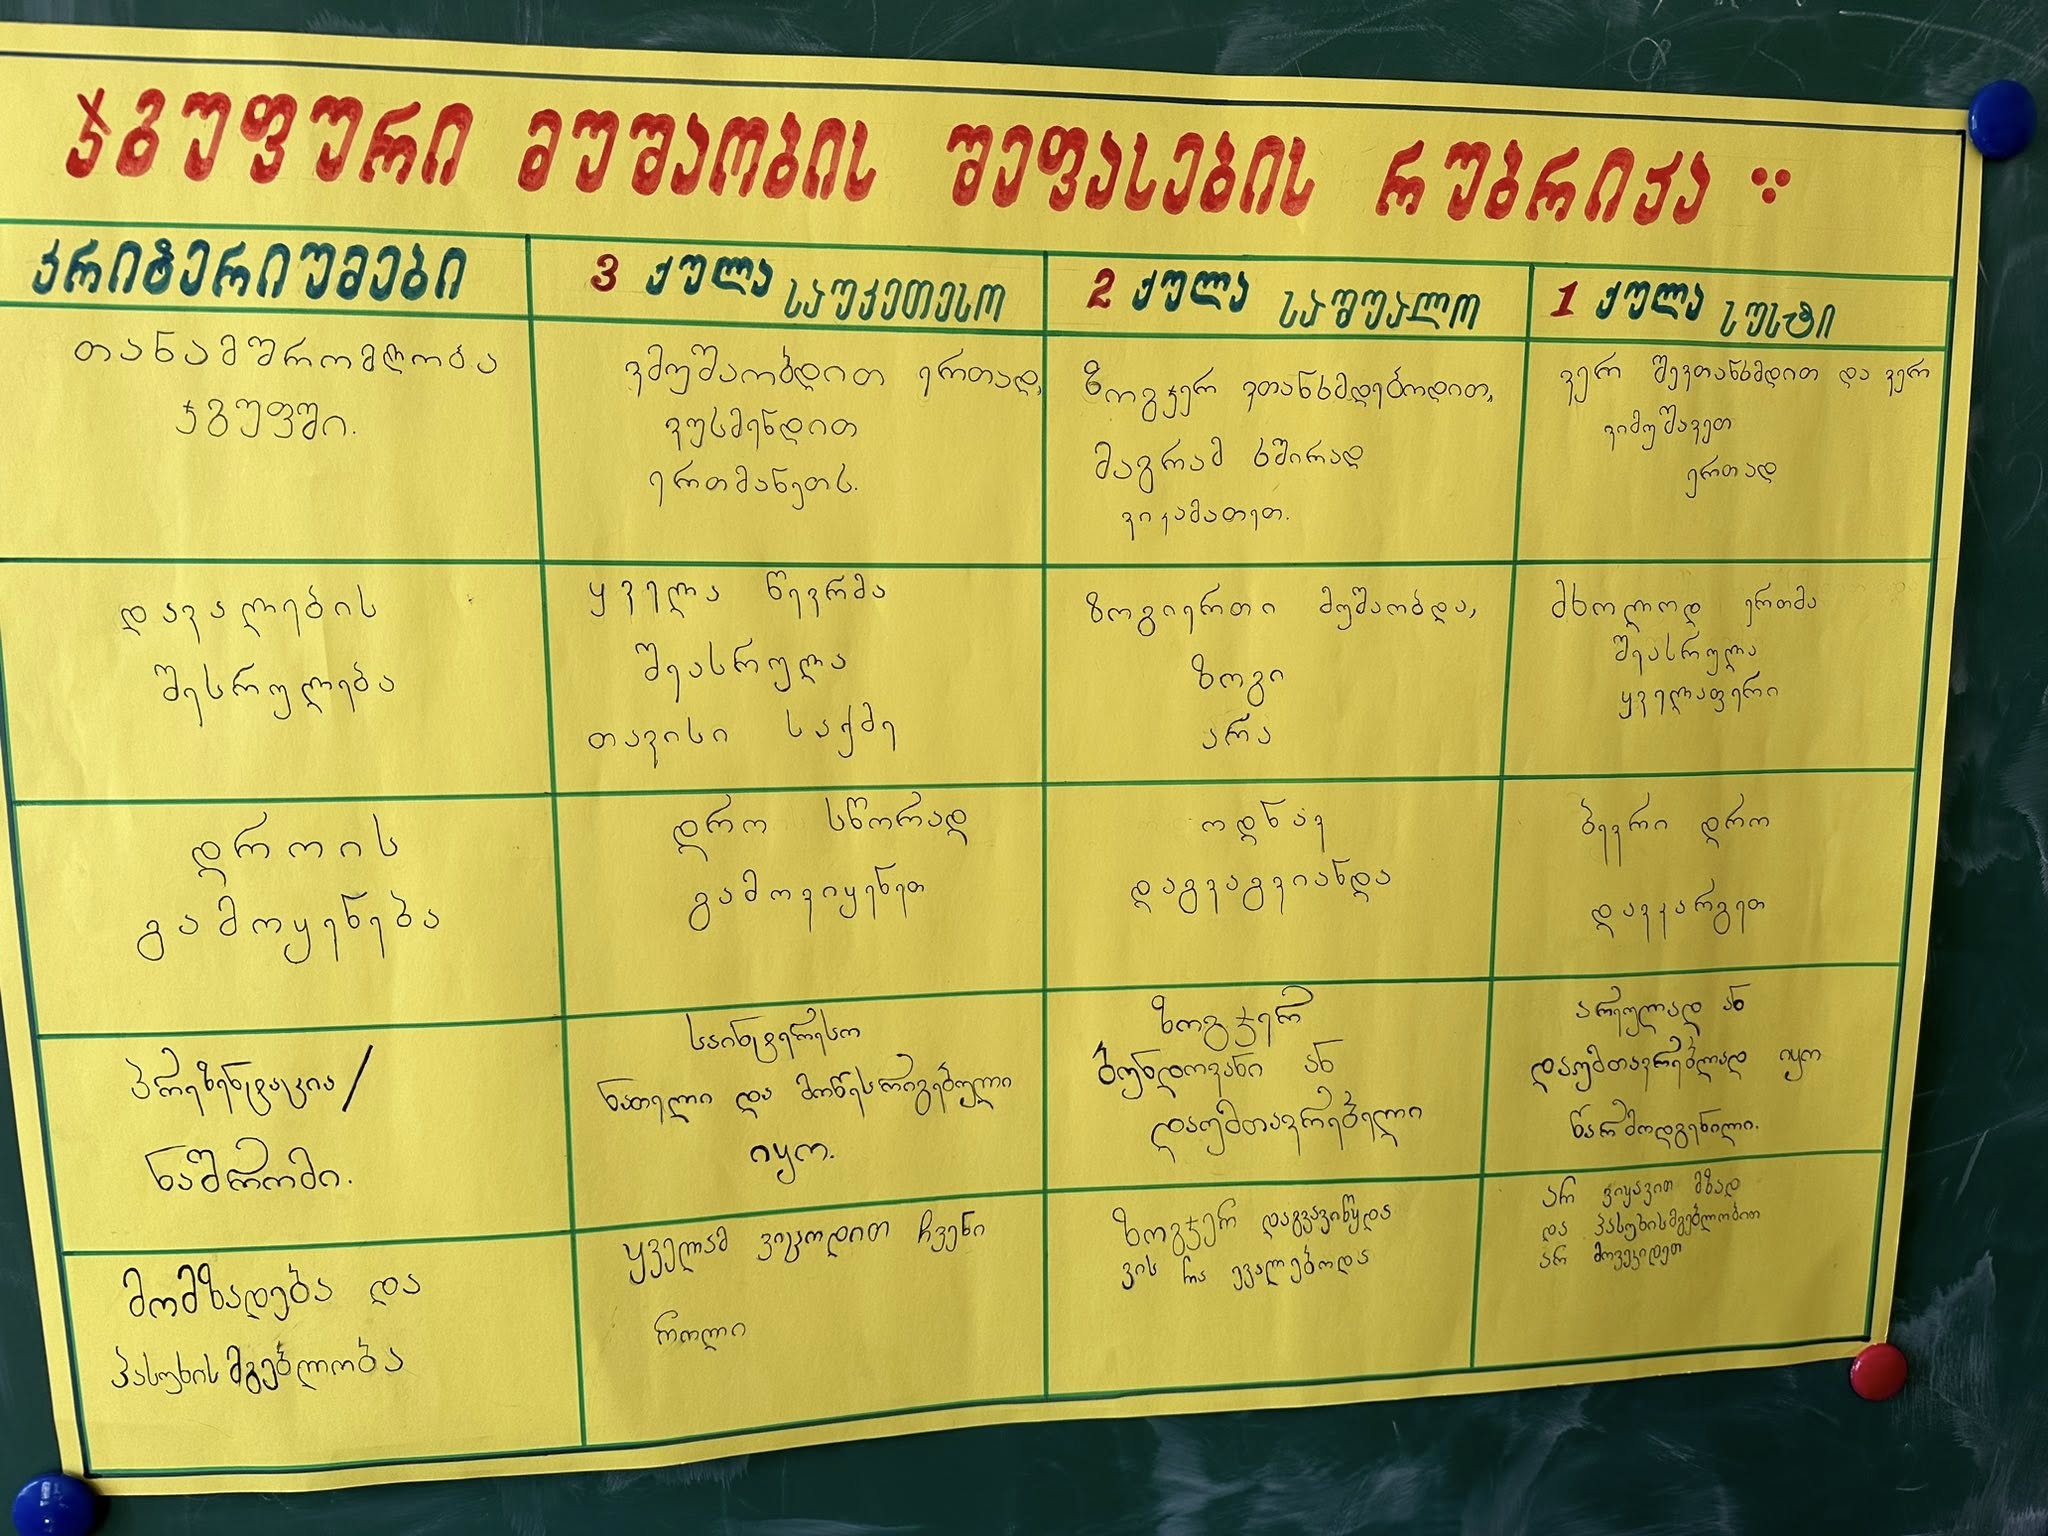 ჯგუფური მუშაობის შეფასების რუბრიქა
კრიტერიუმები
3 ქულა საუკეთესო
2 ქულა საშუალო
1 ქულა სუსტი
თანამშრომლობა
ჯგუფში.
ვმუშაობდით ერთად,
ვუსმენდით
ერთმანეთს.
ზოგჯერ ვთანხმდებოდით,
მაგრამ ხშირად
ვიკამათეთ.
ვერ შევთანხმდით და ვერ
ვიმუშავეთ
ერთად
დავალების
შესრულება
ყველა წევრმა
შეასრულა
თავისი საქმე
ზოგიერთი მუშაობდა,
ზოგი
არა
მხოლოდ ერთმა
შეასრულა
ყველაფერი
დროის
გამოყენება
დრო სწორად
გამოვიყენეთ
ოდნავ
დაგვაგვიანდა
ბევრი დრო
დავკარგეთ
პრეზენტაცია/
ნაშრომი.
საინტერესო
ნათელი და მოწესრიგებული
იყო.
ზოგჯერ
ბუნდოვანი ან
დაუმთავრებელი
არეულად ან
დაუმთავრებლად იყო
წარმოდგენილი.
მომზადება და
პასუხისმგებლობა
ყველამ ვიცოდით ჩვენი
როლი
ზოგჯერ დაგვავიწყდა
ვის რა ევალებოდა
არ ვიყავით მზად
და პასუხისმგებლობით
არ მოვეკიდეთ